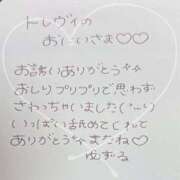 トレヴィの
おにいさま♡♡
お誘いありがとう☆☆
おしりプリプリで思わず
さわっちゃいました(´...`)
いっぱい舐めてくれて
ありがとう☆またね♡
ゆずる